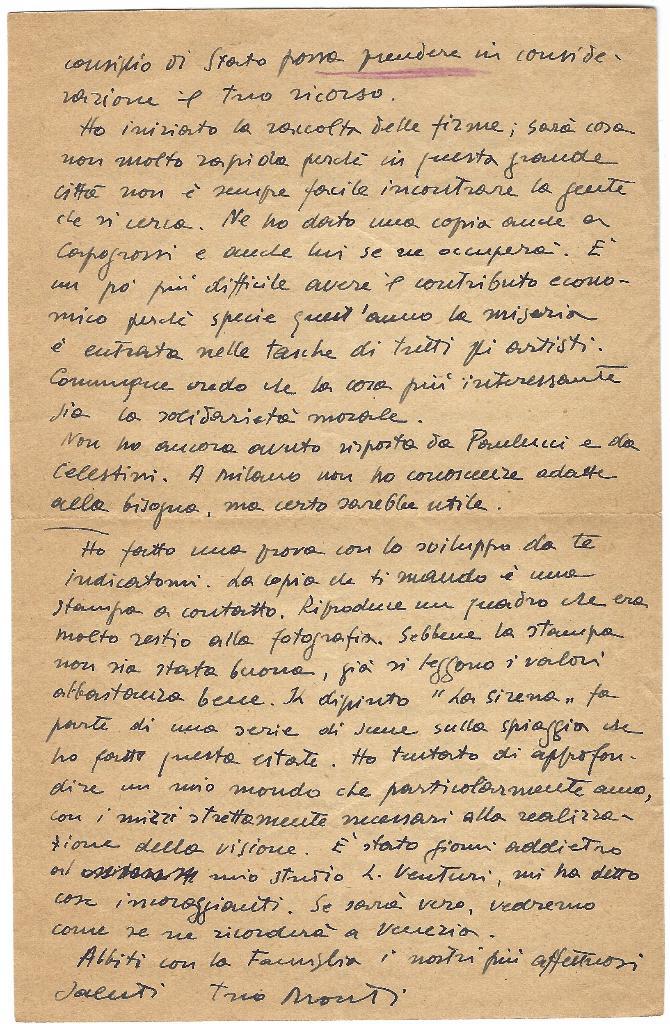 consiglio di Stato possa prendere in conside-
razione il tuo ricorso.
Ho iniziato la raccolta delle firme; sarà cosa
non molto rapida perchè in questa grande
città non è sempre facile incontrare la gente
che si cerca. Ne ho dato una copia anche a
Capogrossi e anche lui se ne occuperà. E'
un po' più difficile avere il contributo econo-
mico perchè specie quest'anno la miseria
è entrata nelle tasche di tutti gli artisti.
Comunque credo che la cosa più interessante
sia la solidarietà morale.
Non ho ancora avuto risposta da Paulucci e da
Celestini. A Milano non ho conoscenze adatte
alla bisogna, ma certo sarebbe utile.
Ho fatto una prova con lo sviluppo da te
indicatomi. La copia che ti mando è una
stampa a contatto. Riproduce un quadro che era
molto restio alla fotografia. Sebbene la stampa
non sia stata buona, già si leggono i valori
abbastanza bene. Il dipinto "La Sirena" fa
parte di una serie di scene sulla spiaggia che
ho fatto questa estate. Ho tentato di approfon-
dire un mio mondo che particolarmente amo,
con i mezzi strettamente necessari alla realizza-
zione della visione. E' stato giorni addietro
al mio studio L. Venturi, mi ha detto
cose incoraggianti. Se sarà vero, vedremo
come se ne ricorderà a Venezia.
Abbiti con la Famiglia i nostri più affettuosi
saluti tuo Monti